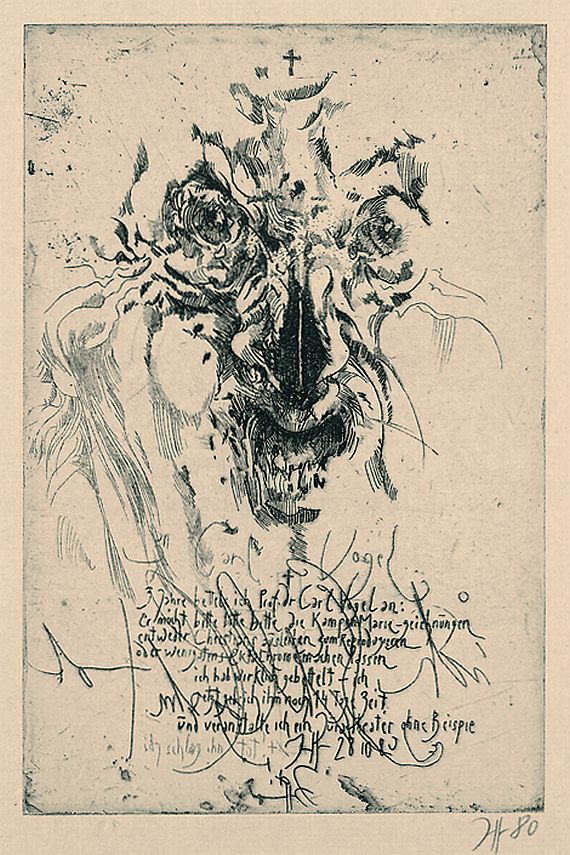 Carl Vogel
3 Jahre bettele ich Prof Dr Carl Vogel an:
Er möcht bitte bitte bitte die Kampen Marie-zeichnungen
entweder Christians ausleihen zum Reproduzieren
oder wenigstens Ektachrome machen lassen
ich hab wirklich gebettelt - ich
jetzt geb ich ihm noch 14 Tage Zeit
und veranstalte ich ein theater ohne Beispie
ich schlag ihn tot HH 28 10 80
HH 80